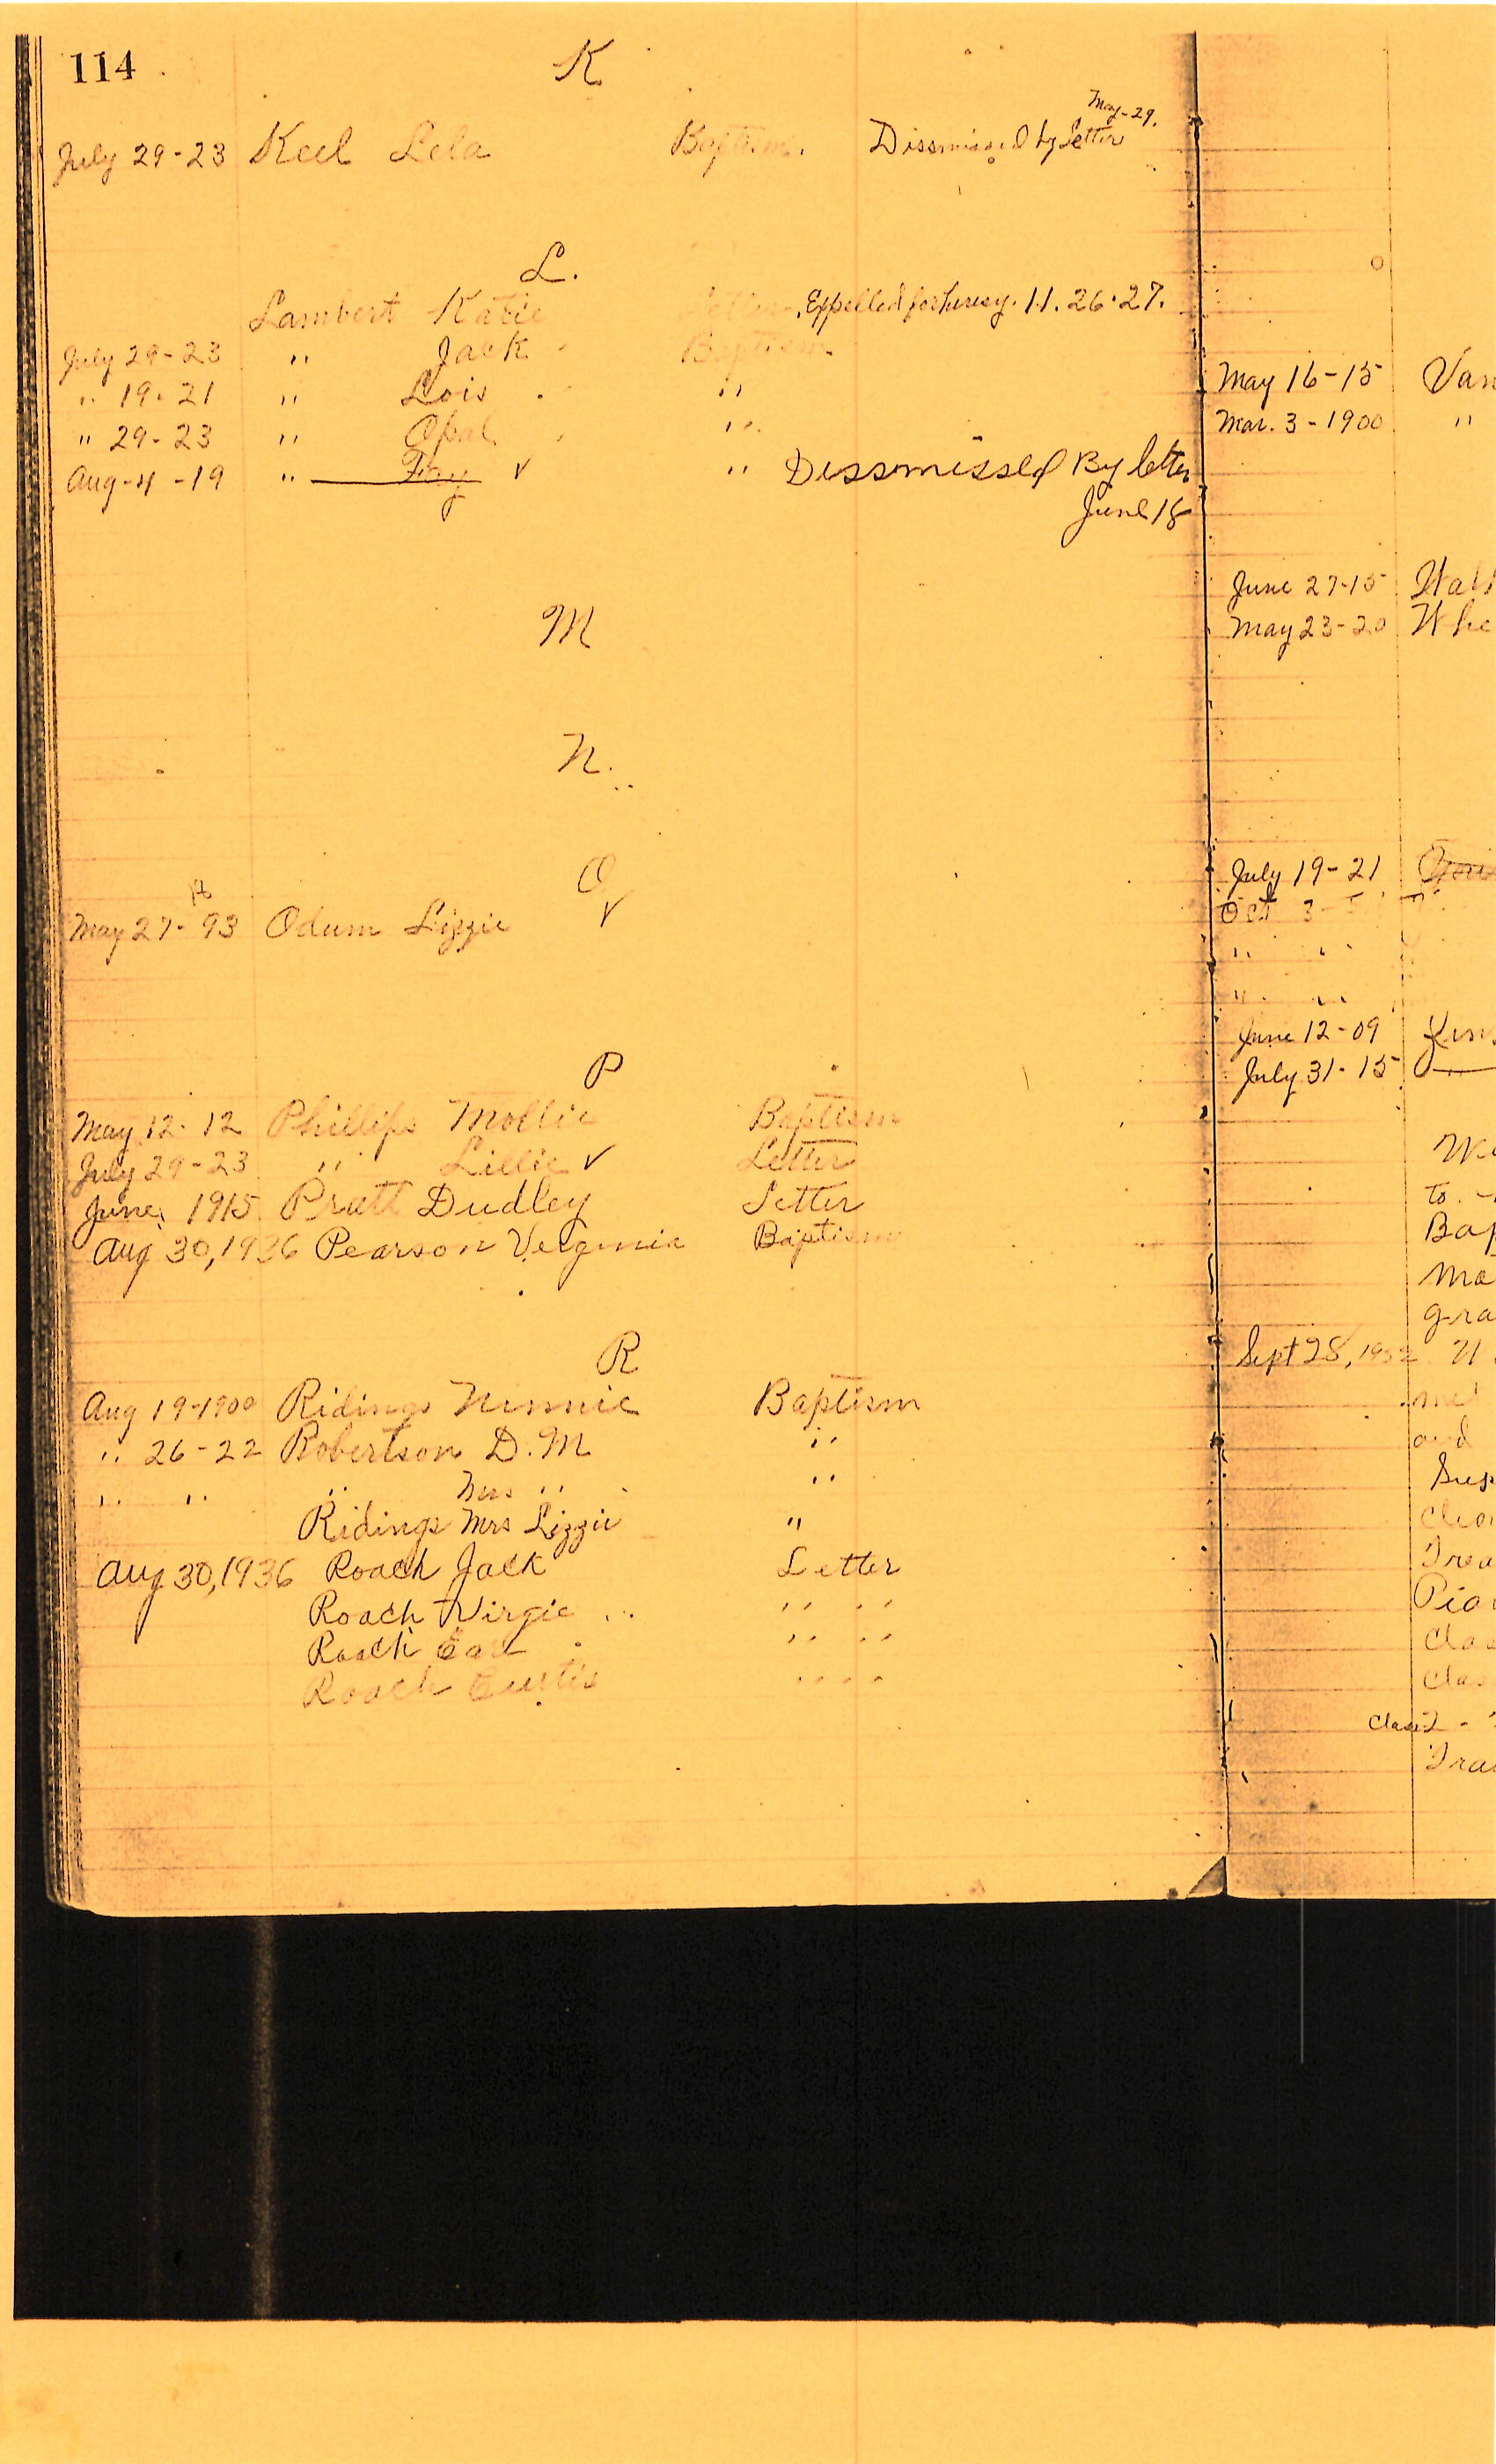 114
K
July 29-23 Keel Lela Baptism. Dissmissed by Letter May-29.
L.
Lambert Katie Letter. Expelled for heresy. 11.26.27.
July 29-23 " Jack Baptism
" 19-21 " Lois "
" 29-23 " Opal "
Aug-4-19 " Fay ✓ " Dissmissed By letter
June 18
M
N.
O
May 27-93 Odum Lizzie ✓
P
May 12-12 Phillips Mollie Baptism
July 29-23 " Lillie ✓ Letter
June, 1915 Pratt Dudley Letter
Aug 30, 1936 Pearson Verginia Baptism
R
Aug 19-1900 Ridings Minnie Baptism
" 26-22 Robertson D.M "
" " " Mrs " "
Ridings Mrs Lizzie "
Aug 30, 1936 Roach Jack Letter
Roach Virgie " "
Roach Earl " "
Roach Curtis " "
May 16-15 Van
Mar. 3-1900 "
June 27-15
May 23-20 Whe
July 19-21
Oct 3
" "
" "
June 12-09
July 31-15
to.
Bap
Mo
gra
Sept 28, 1932
met
and
Sup
Trea
Pia
Clas
Clas
Class 2 -
Tra